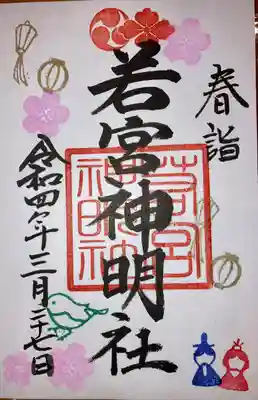 春詣
若宮神明社
若宮神明神
令和四年三月二十七日